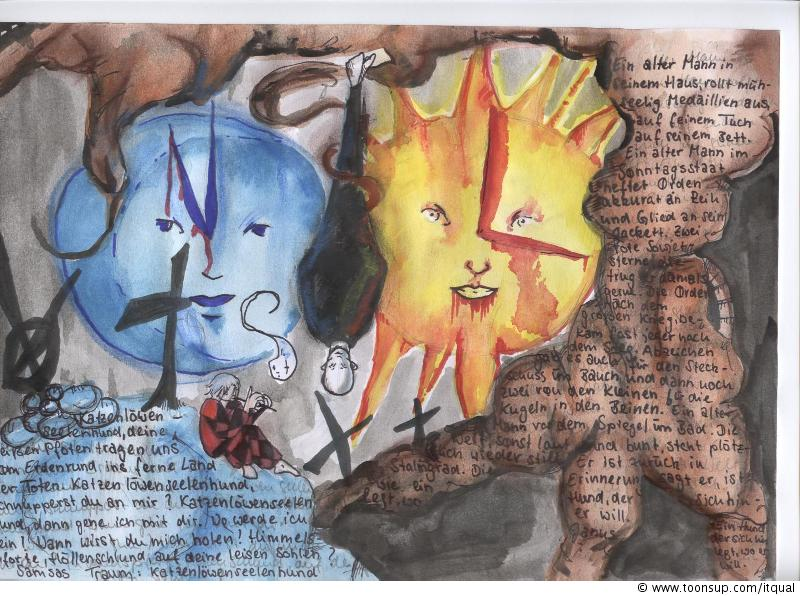 Ein alter Mann in
seinem Haus, rollt müh-
seelig Medaillien aus,
auf feinem Tuch
auf seinem Bett.
Ein alter Mann im
Sonntagsstaat
heftet Orden
akkurat an Reih
und Glied an sein
Jackett. Zwei
rote Sowjet-
sterne
trug er damals
gern. Die Orden
nach dem
großen Krieg be-
kam fast jeder nach
dem Sieg. Abzeichen
gab es auch für den Steck-
schuss im Bauch und dann noch
zwei von den Kleinen für die
Kugeln in den Beinen. Ein alter
Mann vor dem Spiegel im Bad. Die
Welt, sonst laut und bunt, steht plötz-
lich wieder still.
Er ist zurück in
Stalingrad. Die
Erinnerung sagt er, ist
wie ein Hund, der sich hin-
legt, wo er will.
Janus
Ein Hund
der sich hin
legt, wo er
will.
Katzenlöwen
seelenhund, deine
leisen Pfoten tragen uns
am Erdenrund, ins ferne Land
der Toten. Katzenlöwenseelenhund,
schnupperst du an mir? Katzenlöwenseelen
hund, dann gehe ich mit dir. Wo werde ich
sein? Wann wirst du mich holen? Himmels-
pforte, Höllenschlund, auf deine leisen Sohlen?
Samsas Traum: Katzenlöwenseelenhund
© www.toonsup.com/itqual